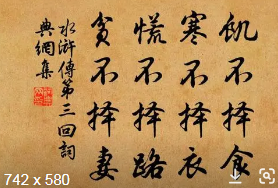 飢不择食
寒不择衣
慌不择路
貧不择妻
水滸傳第三回詞
典網集
742 x 580